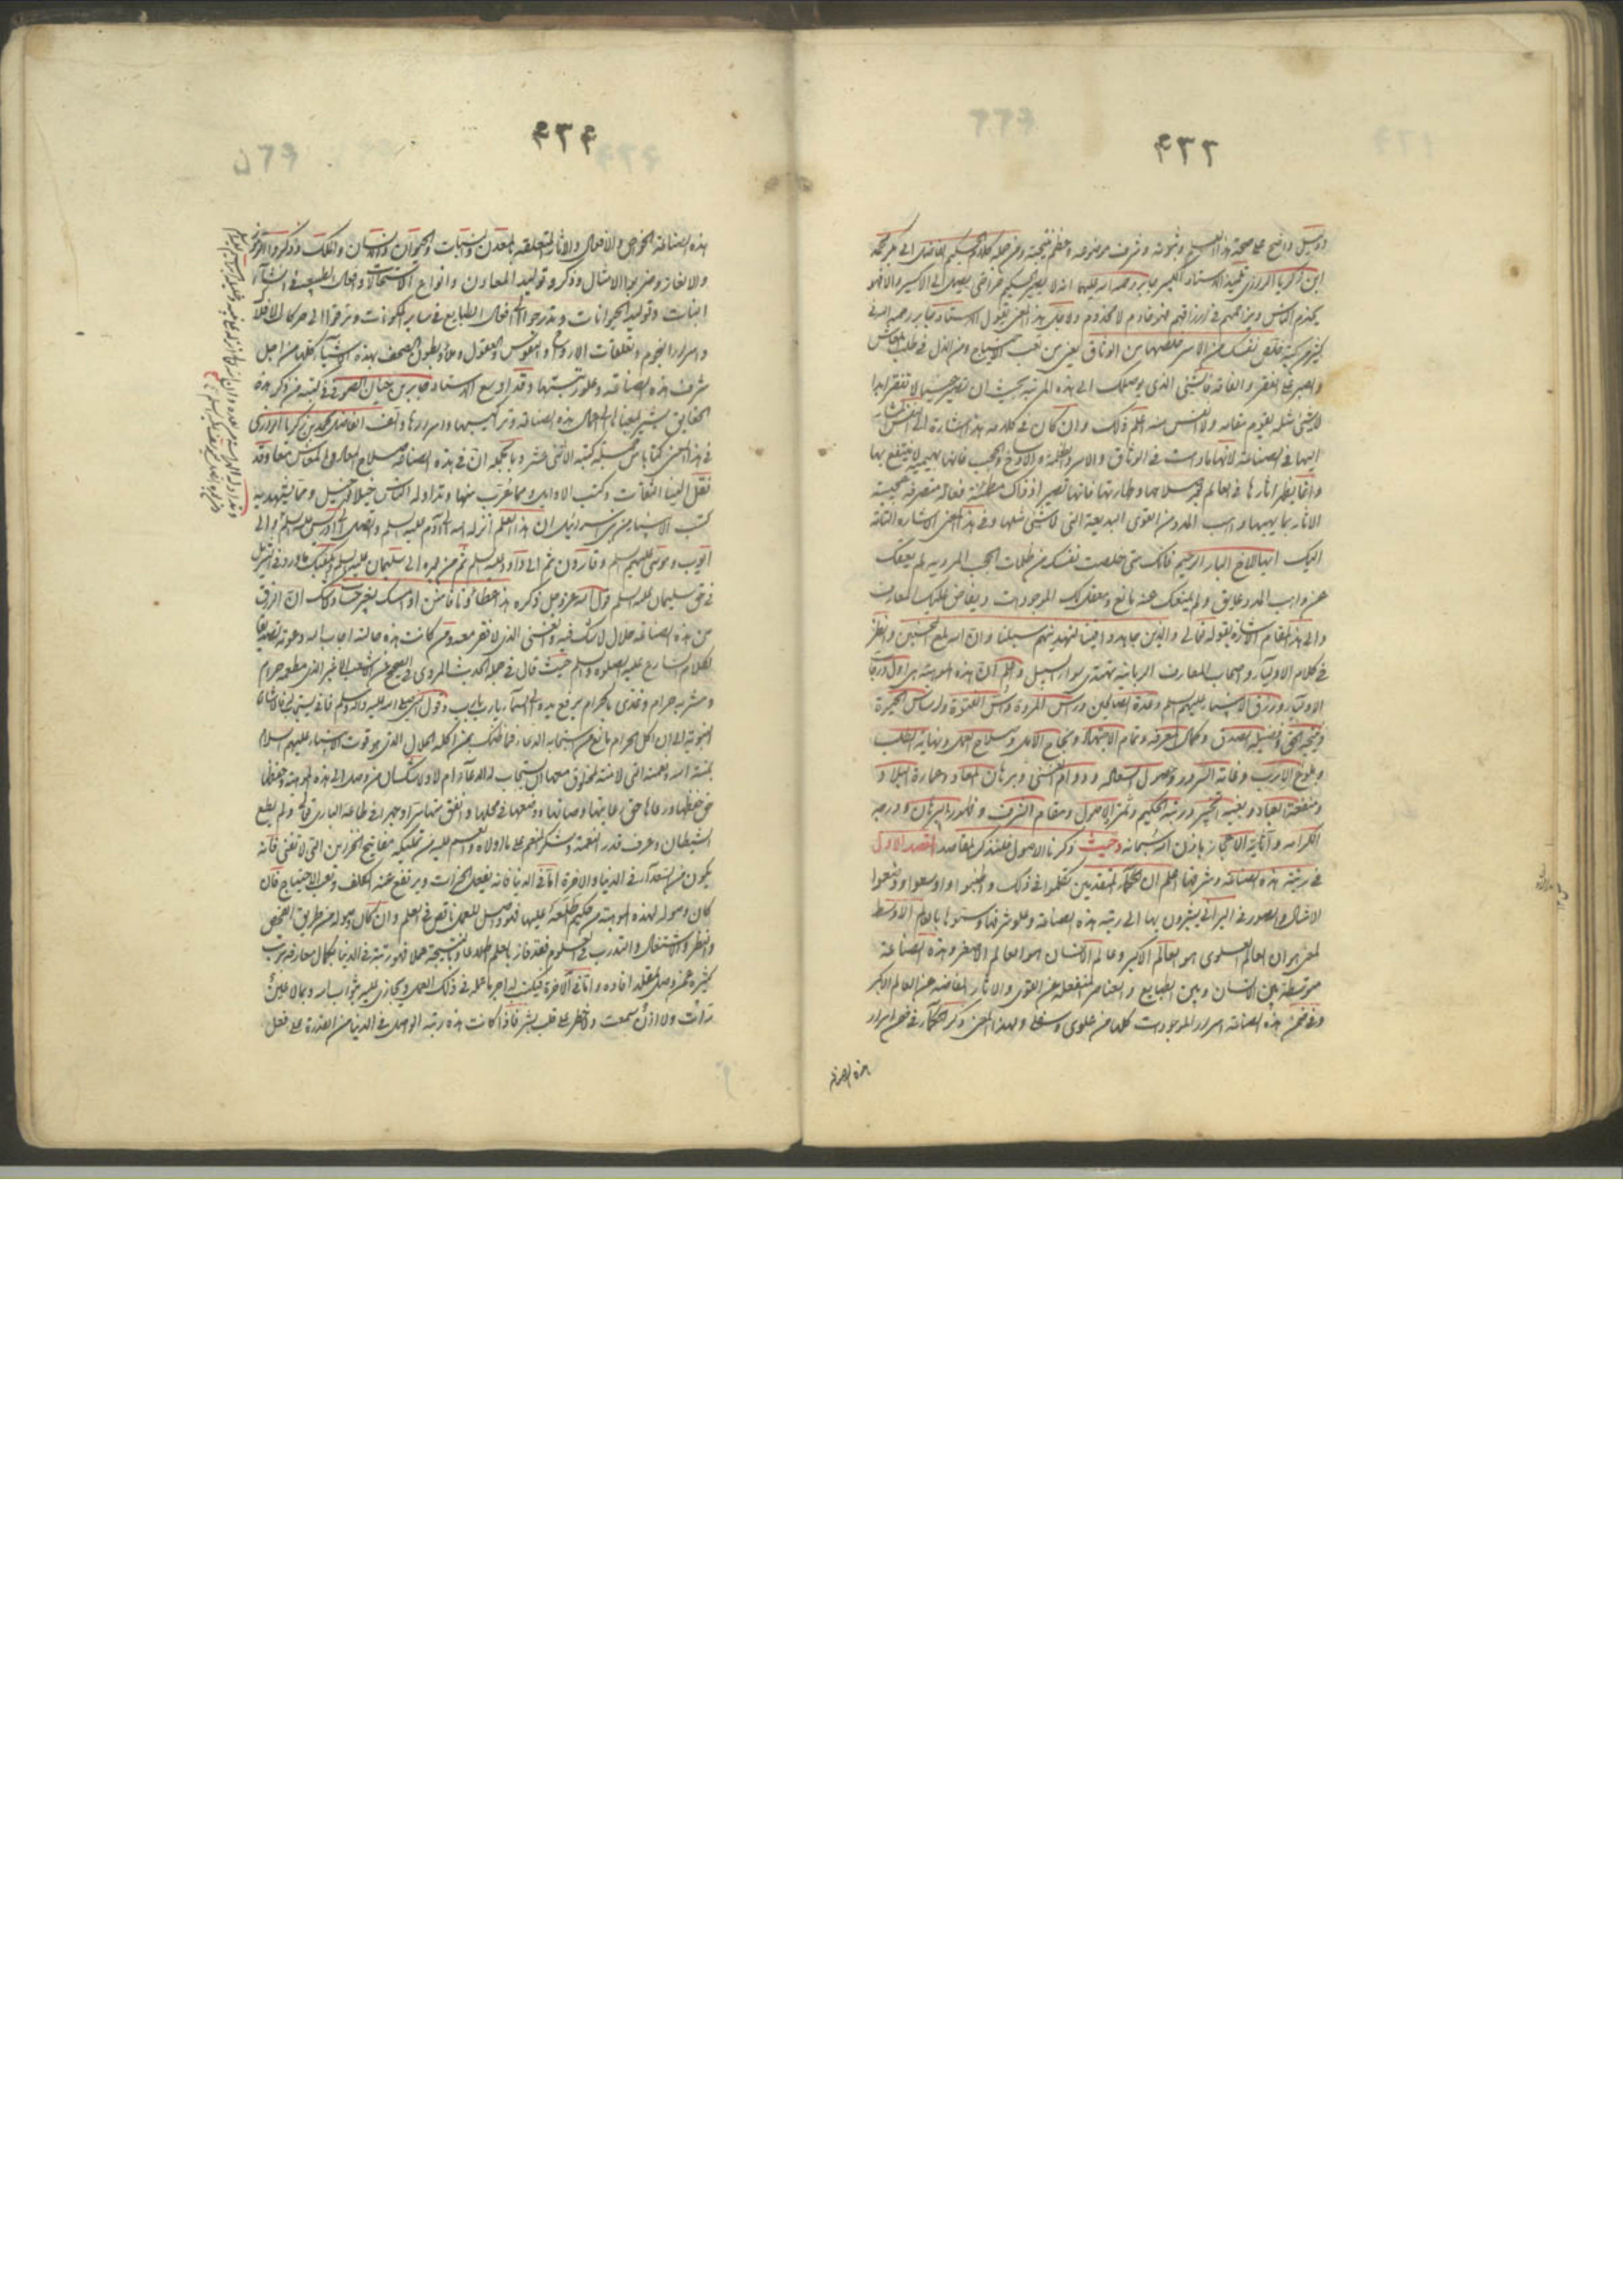 ٤٢٢
ودليل واضح على صحة هذا العلم وثبوته وشرف موضوعه وعظم نتيجته ومن جملة كلام الحكيم الفاضل ابي بكر محمد
ابن زكريا الرازي تلميذ الاستاد الكبير جابر رحمة الله عليهما انه لا يصير الحكيم حتى يصل الى الاكسير والا فهو
يخدم الناس ويزاحمهم في ارزاقهم فهو خادم لا مخدوم ولاجل هذا المعنى يقول الاستاد جابر رحمه الله في
كثير من كتبه فخلص نفسك من الاسر خلصها من الوثاق يعني من تعب الاحتياج ومن الذل في طلب المعاش
والصبر على الفقر والفاقة فالشيء الذي يوصلك الى هذه المرتبة بحيث ان تصير حينئذ لا تفتقر ابدا
لا شيء مثله يقوم مقامه ولا انفس منه اعلم ذلك وان كان في كلامه هذا اشارة الى النفس المشار
اليها في الصناعة لانها ما دامت في الوثاق والاسر والظلمة والاوساخ والحجب فانها بهيمية لا ينتفع بها
وانما يظهر اثارها في العالم بعد صلاحها وطهارتها فانها تصير اذ ذاك مطمئنة فعالة متصرفة عجيبة
الاثار بما يهبها واهب المدد من القوى البديعة التي لا شيء مثلها وفي هذا المعنى الاشارة الثانية
اليك ايها الاخ البار الرحيم فانك متى خلصت نفسك من ظلمات الحجب المردية لم يعقك
عن واهب المدد عايق ولم يمنعك عنه مانع ويعقلك الموجودات ويفاض عليك المعارف
والى هذا المقام الاشارة بقوله تعالى والذين جاهدوا فينا لنهدينهم سبلنا وان الله لمع المحسنين وانظر
في كلام الاولياء واصحاب المعارف الربانية تهتدي سواء السبيل واعلم ان هذه الموهبة هي اول درجات
الاولياء ورزق الانبياء عليهم السلم وعدة الصالحين وراس المروة واس الفتوة واساس الخيرة
ونتيجة الحق وفضيلة الصدق وكمال المعرفة وتمام الاجتهاد ونجاح الامل وصلاح العمل ونهاية الطلب
وبلوغ الارب وغاية السرور وحصول السعادة ودوام الغنى وبرهان المعاد وعمارة البلاد
ومنفعة العباد وبغية المتحير ورتبة الحكيم وثمرة الاصول ومقام الشرف وظهور البرهان ودرجة
الكرامة وآنية الاعجاز باذن الله سبحانه وحيث ذكرنا الاصول فلنذكر المقاصد المقصد الاول
في رتبة هذه الصناعة وشرفها اعلم ان الحكماء المتقدمين تكلموا في ذلك واطنبوا واوسعوا ووضعوا
الامثال والصور في البرابي يشيرون بها الى رتبة هذه الصناعة وعلو شرفها وسموها بالعالم الاوسط
لمعنى هو ان العالم العلوي هو العالم الاكبر وعالم الانسان هو العالم الاصغر وهذه الصناعة
متوسطة بين الانسان وبين الطبايع والعناصر المنفعلة عن القوى والاثار الفايضة عن العالم الاكبر
وفي ضمن هذه الصناعة اسرار الموجودات كلها من علوي وسفلي ولهذا المعنى ذكر الحكماء في ضمن اسرار
هذه الصناعة
٤٢٣
هذه الصناعة الخواص والافعال والاثار المتعلقة بالمعدن والنبات والحيوان والانسان والفلك وذكروا الرموز
والالغاز وضربوا الامثال وذكروا توليد المعادن وانواع الاستحالات وافعال الطبيعة في انشاء
النبات وتوليد الحيوانات وتدرجوا الى افعال الطبايع في ساير المكونات وترقوا الى حركات الافلاك
واسرار النجوم وتعلقات الارواح والنفوس والعقول وملأوا بطون الصحف بهذه الاشياء كلها من اجل
شرف هذه الصناعة وعلو رتبتها وقد اوسع الاستاد جابر بن حيان الصوفي في كتبه من ذكر هذه
الحقايق يشير بمعانيها الى اعمال هذه الصناعة وتراكيبها واسرارها والف الفاضل محمد بن زكريا الرازي
في هذا المعنى كتابا من جملة كتبه الاثني عشر وبالجملة ان في هذه الصناعة صلاح المعاد والمعاش معا وقد
نقل الينا الثقات وكتب الاوايل ومما عُرّب منها وتداوله الناس جيلا بعد جيل ومما يشهد به
كتب الانبياء من بني اسرائيل ان هذا العلم انزله الله الى آدم عليه السلم واتصل الى ادريس عليه السلم والى
ايوب وموسى عليهم السلم وقارون ثم الى داود عليه السلم ثم من بعده الى سليمان عليه السلم وناهيك ما ورد في التنزيل
في حق سليمان عليه السلم قول الله عز وجل ذكره هذا عطاؤنا فامنن او امسك بغير حساب وذلك ان الرزق
من هذه الصناعة حلال لا شك فيه والغنى الذي لا فقر معه ومن كانت هذه حالته اجاب الله دعوته تصديقا
لكلام الشارع عليه الصلوة والسلم حيث قال في جملة الحديث المروي في الصحيح عن الاشعث الاغبر الذي مطعمه حرام
ومشربه حرام وغذي بالحرام يرفع يديه الى السماء يا رب يا رب وقول النبي صلى الله عليه واله وسلم فانى يستجاب له فالاشارة
النبوية الى ان اكل الحرام مانع من استجابة الدعاء فما ظنك بمن اكله الحلال الذي هو قوت الانبياء عليهم السلام
بمنة الله ونعمته التي لا منة لمخلوق معها ايستجاب له الدعاء ام لا ولا شك ان من وصل الى هذه الموهبة وحفظها
حق حفظها ورعاها حق رعايتها وصانها ووضعها في محلها وانفق منها سرا وجهرا في طاعة الباري تعالى ولم يطع
الشيطان وعرف قدر النعمة وشكر المنعم على ما اولاه وانعم عليه من تمليكه مفاتيح الخزاين التي لا تفنى فانه
يكون من السعداء في الدنيا والاخرة اما في الدنيا فانه يفعل الخيرات ويرتفع عنه الكلف وتعب الاحتياج فان
كان وصوله لهذه الموهبة من حكيم اطلعه عليها فهو واصل للعمل ناقص في العلم وان كان وصوله من طريق الفحص
والنظر والاشتغال والتدرب في العلوم فقد فاز بالعلم اطلاعا وبالنتيجة عملا فهو رتبة في الدنيا بكمال معارفه
كثيرة عمن وصل بتقليد افاده واما في الاخرة فيكتب له اجر ما عمله في ذلك العمل ويجازى عليه بثواب الله وبما لا عين
رأت ولا اذن سمعت ولا خطر على قلب بشر فاذا كانت هذه رتبة الواصل في الدنيا من القدرة على فعل